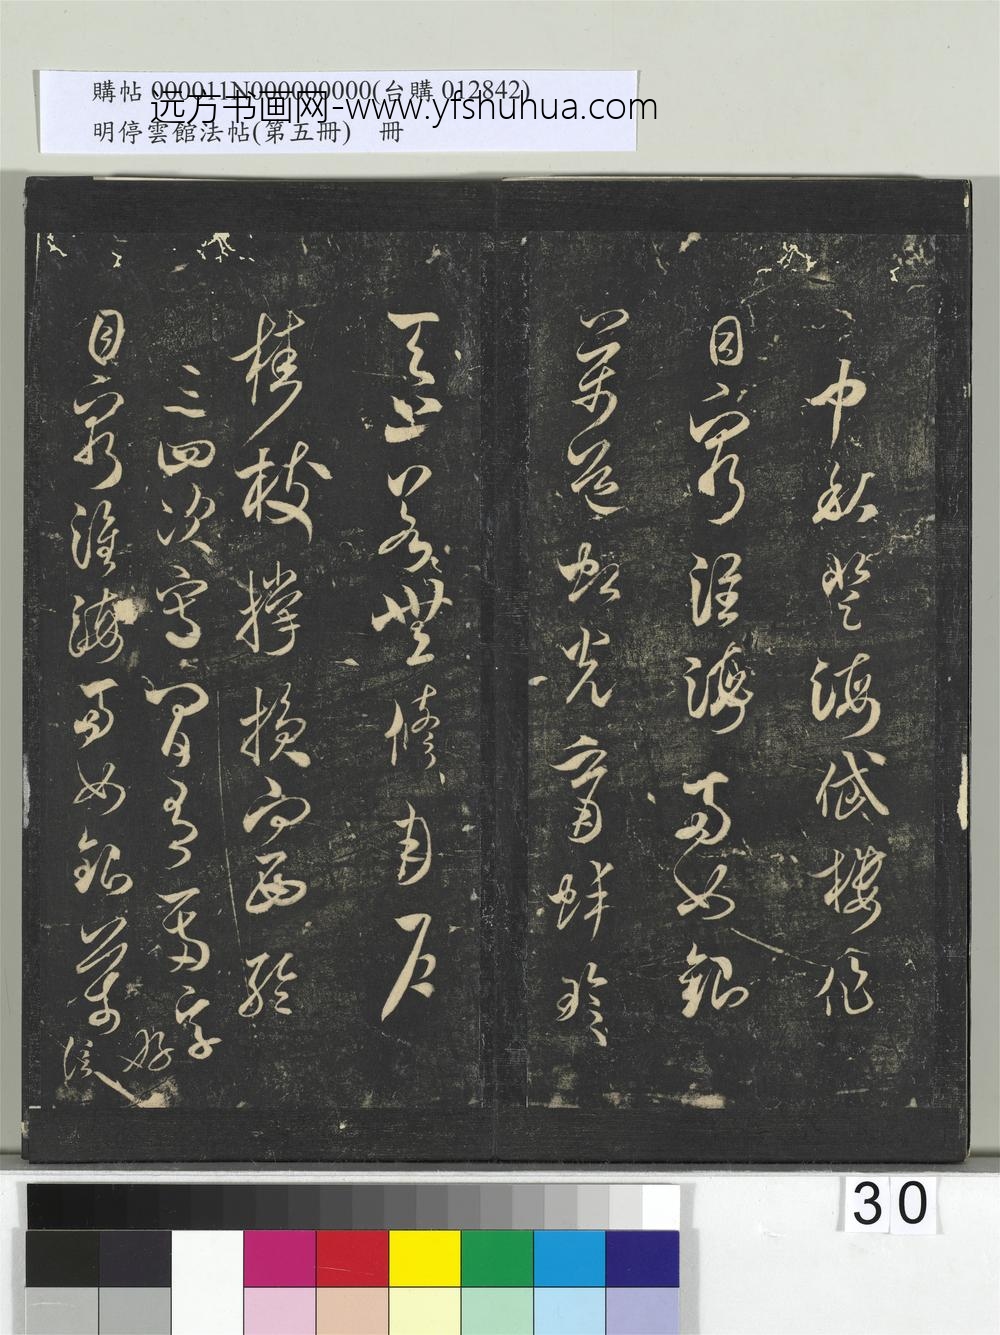 購帖 000011N000000000(台購 012842)
远方书画网-www.yfshuhua.com
明停雲館法帖(第五冊) 冊
中秋登海岱樓作
目窮淮海兩如銀
萬道虹光育蚌珍
天上若無修月戶
桂枝撐損向西輪
三四次寫間有一兩字好信
目窮淮海兩如銀萬
30